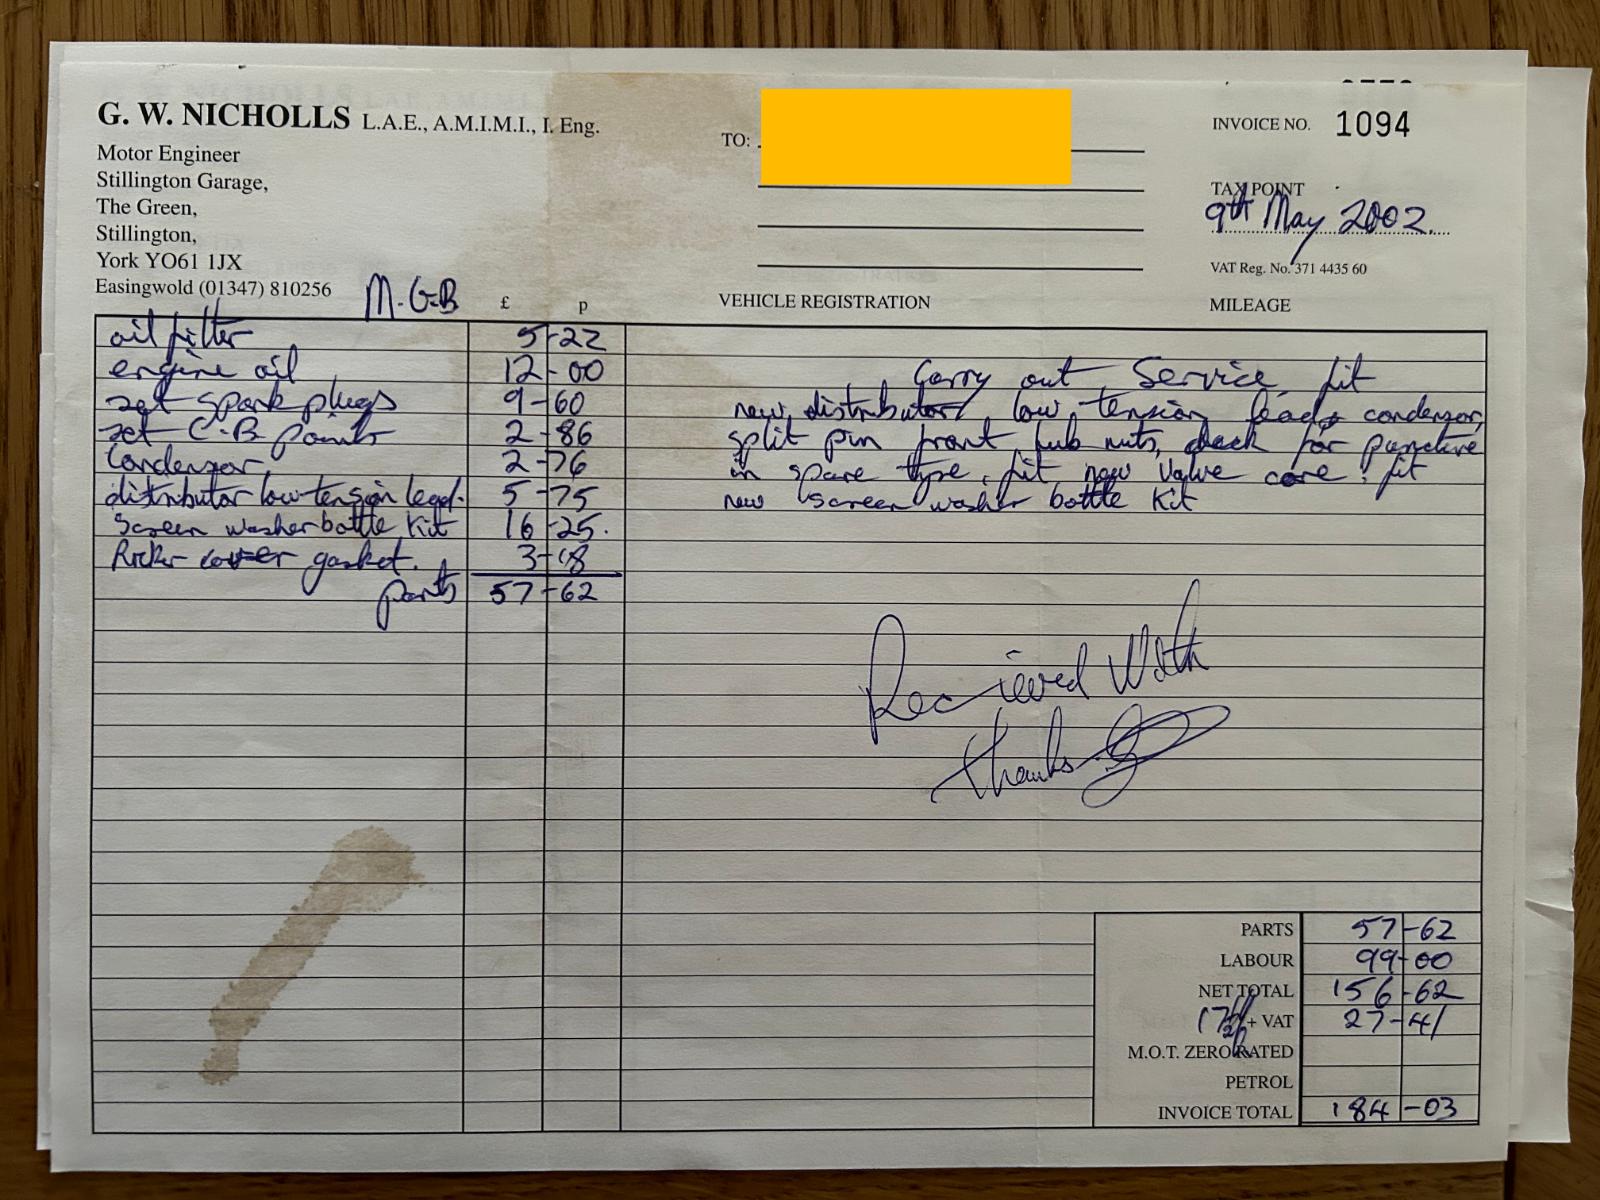 G. W. NICHOLLS L.A.E., A.M.I.M.I., I. Eng.
Motor Engineer
Stillington Garage,
The Green,
Stillington,
York YO61 1JX
Easingwold (01347) 810256
M.G.B
TO:
INVOICE NO. 1094
TAX POINT
9th May 2002.
VAT Reg. No. 371 4435 60
£ p
VEHICLE REGISTRATION
MILEAGE
oil filter 5-22
engine oil 12-00
set spark plugs 9-60
set C.B points 2-86
Condensor, 2-76
distributor low tension lead. 5-75
Screen washer bottle Kit 16-25.
cover gasket. 3-18
parts 57-62
Carry out Service, fit
new distributor, low tension leads condensor,
split pin front hub nuts, check for puncture
in spare tyre. fit new valve core. fit
new screen washer bottle Kit
Recieved With
thanks
PARTS 57-62
LABOUR 99-00
NET TOTAL 156-62
17½% + VAT 27-41
M.O.T. ZERO RATED
PETROL
INVOICE TOTAL 184-03